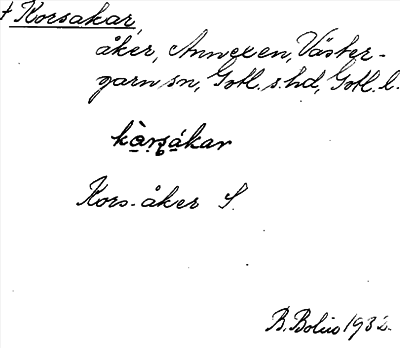 † Korsakar,
åker, Annexen, Väster-
garn sn, Gotl. s. hd, Gotl. l.
kàrsákar
Kors-åker S.
B. Bolin 1932.